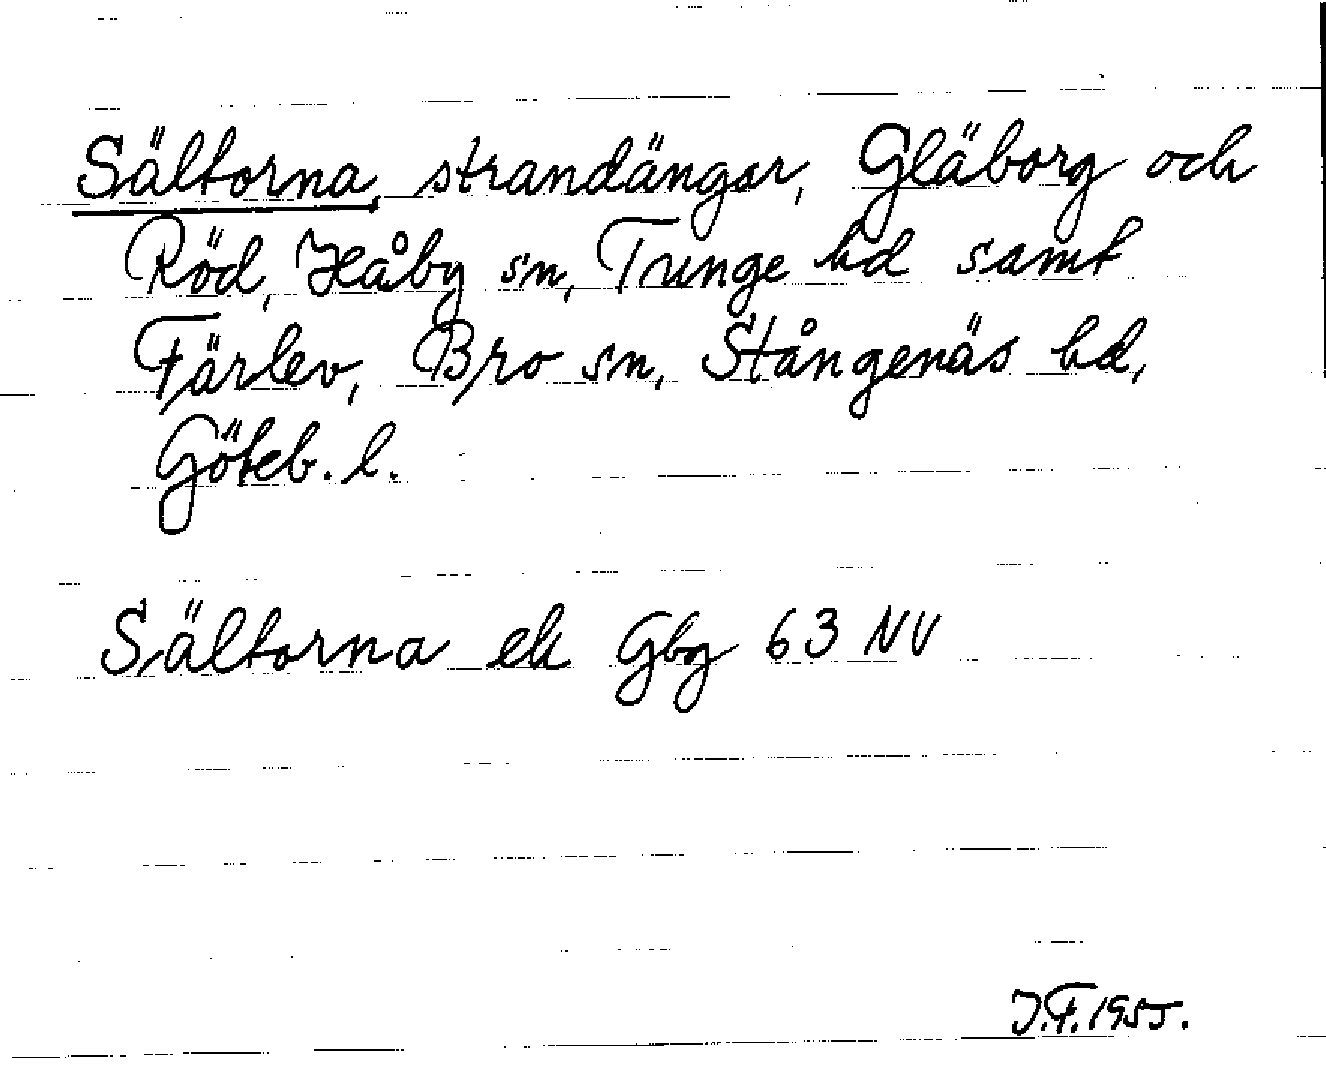 Sältorna, strandängar, Gläborg och
Röd, Håby sn, Tunge hd samt
Färlev, Bro sn, Stångenäs hd,
Göteb. l.
Sältorna ek Gbg 63 NV
J.F. 1955.